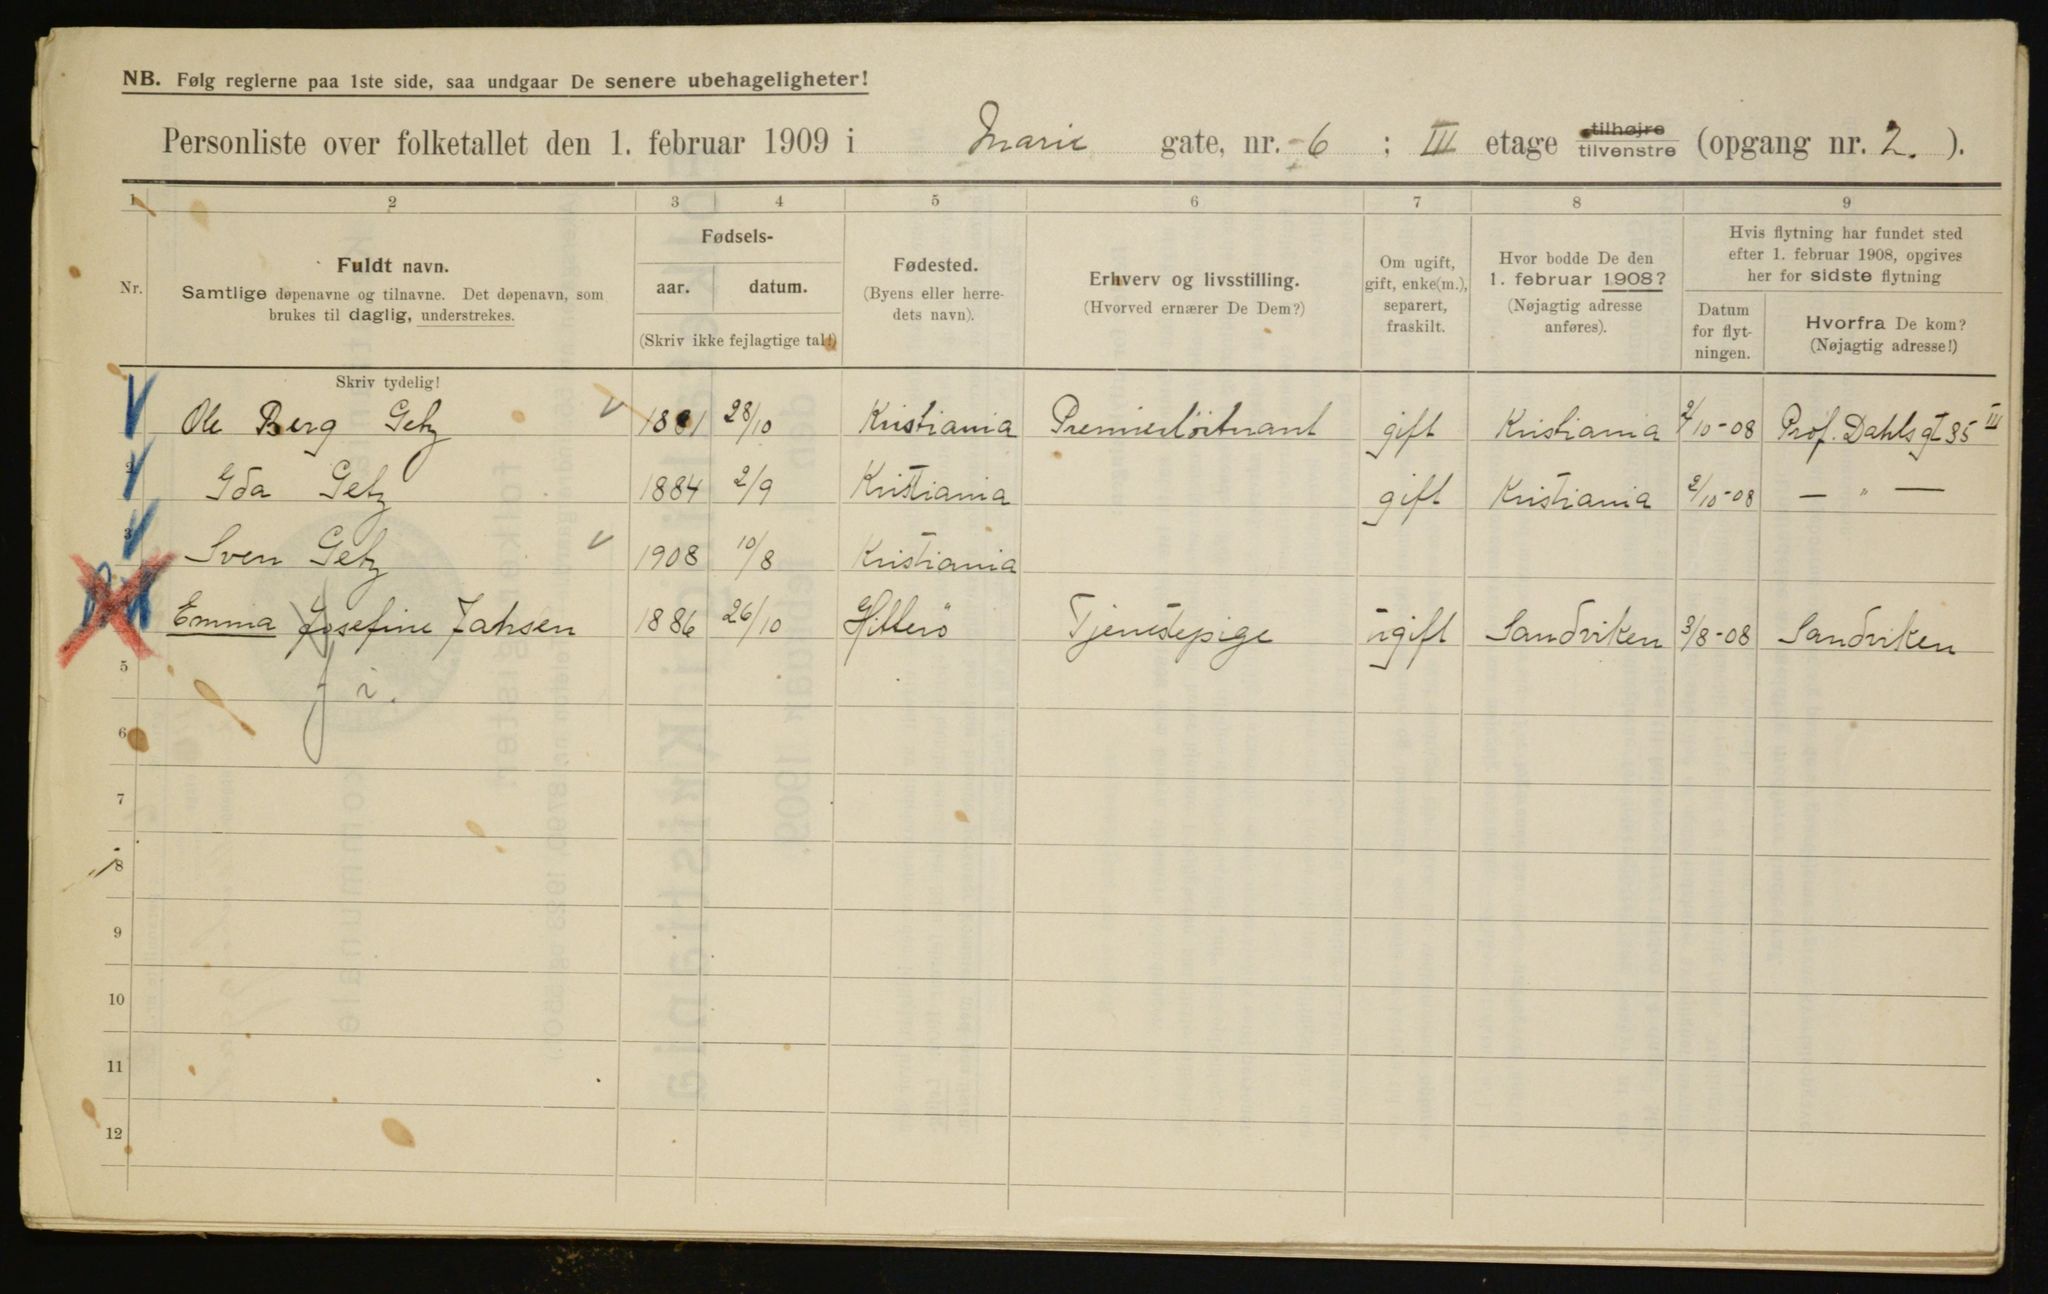 NB. Følg reglerne paa 1ste side, saa undgaar De senere ubehageligheter!
Personliste over folketallet den 1. februar 1909 i Marie gate, nr. 6 ; III etage tilhøjre tilvenstre (opgang nr. 2. ).
1 2 3 4 5 6 7 8 9
Nr.
Fuldt navn.
Samtlige døpenavne og tilnavne. Det døpenavn, som
brukes til daglig, understrekes.
Skriv tydelig!
Fødsels-
aar. datum.
(Skriv ikke fejlagtige tal!)
Fødested.
(Byens eller herre-
dets navn).
Erhverv og livsstilling.
(Hvorved ernærer De Dem?)
Om ugift,
gift, enke(m.),
separert,
fraskilt.
Hvor bodde De den
1. februar 1908?
(Nøjagtig adresse
anføres).
Hvis flytning har fundet sted
efter 1. februar 1908, opgives
her for sidste flytning
Datum
for flyt-
ningen.
Hvorfra De kom?
(Nøjagtig adresse!)
Ole Berg Getz 1881 28/10 Kristiania Premierløitnant gift Kristiania 2/10-08 Prof. Dahls gt 35 III
2 Ida Getz 1884 2/9 Kristiania gift Kristiania 2/10-08 — " —
3 Sven Getz 1908 10/8 Kristiania
Emma Josefine Jahsen 1886 26/10 Hitterö Tjenestepige ugift Sandviken 3/8-08 Sandviken
5
6
7
8
9
10
11
12